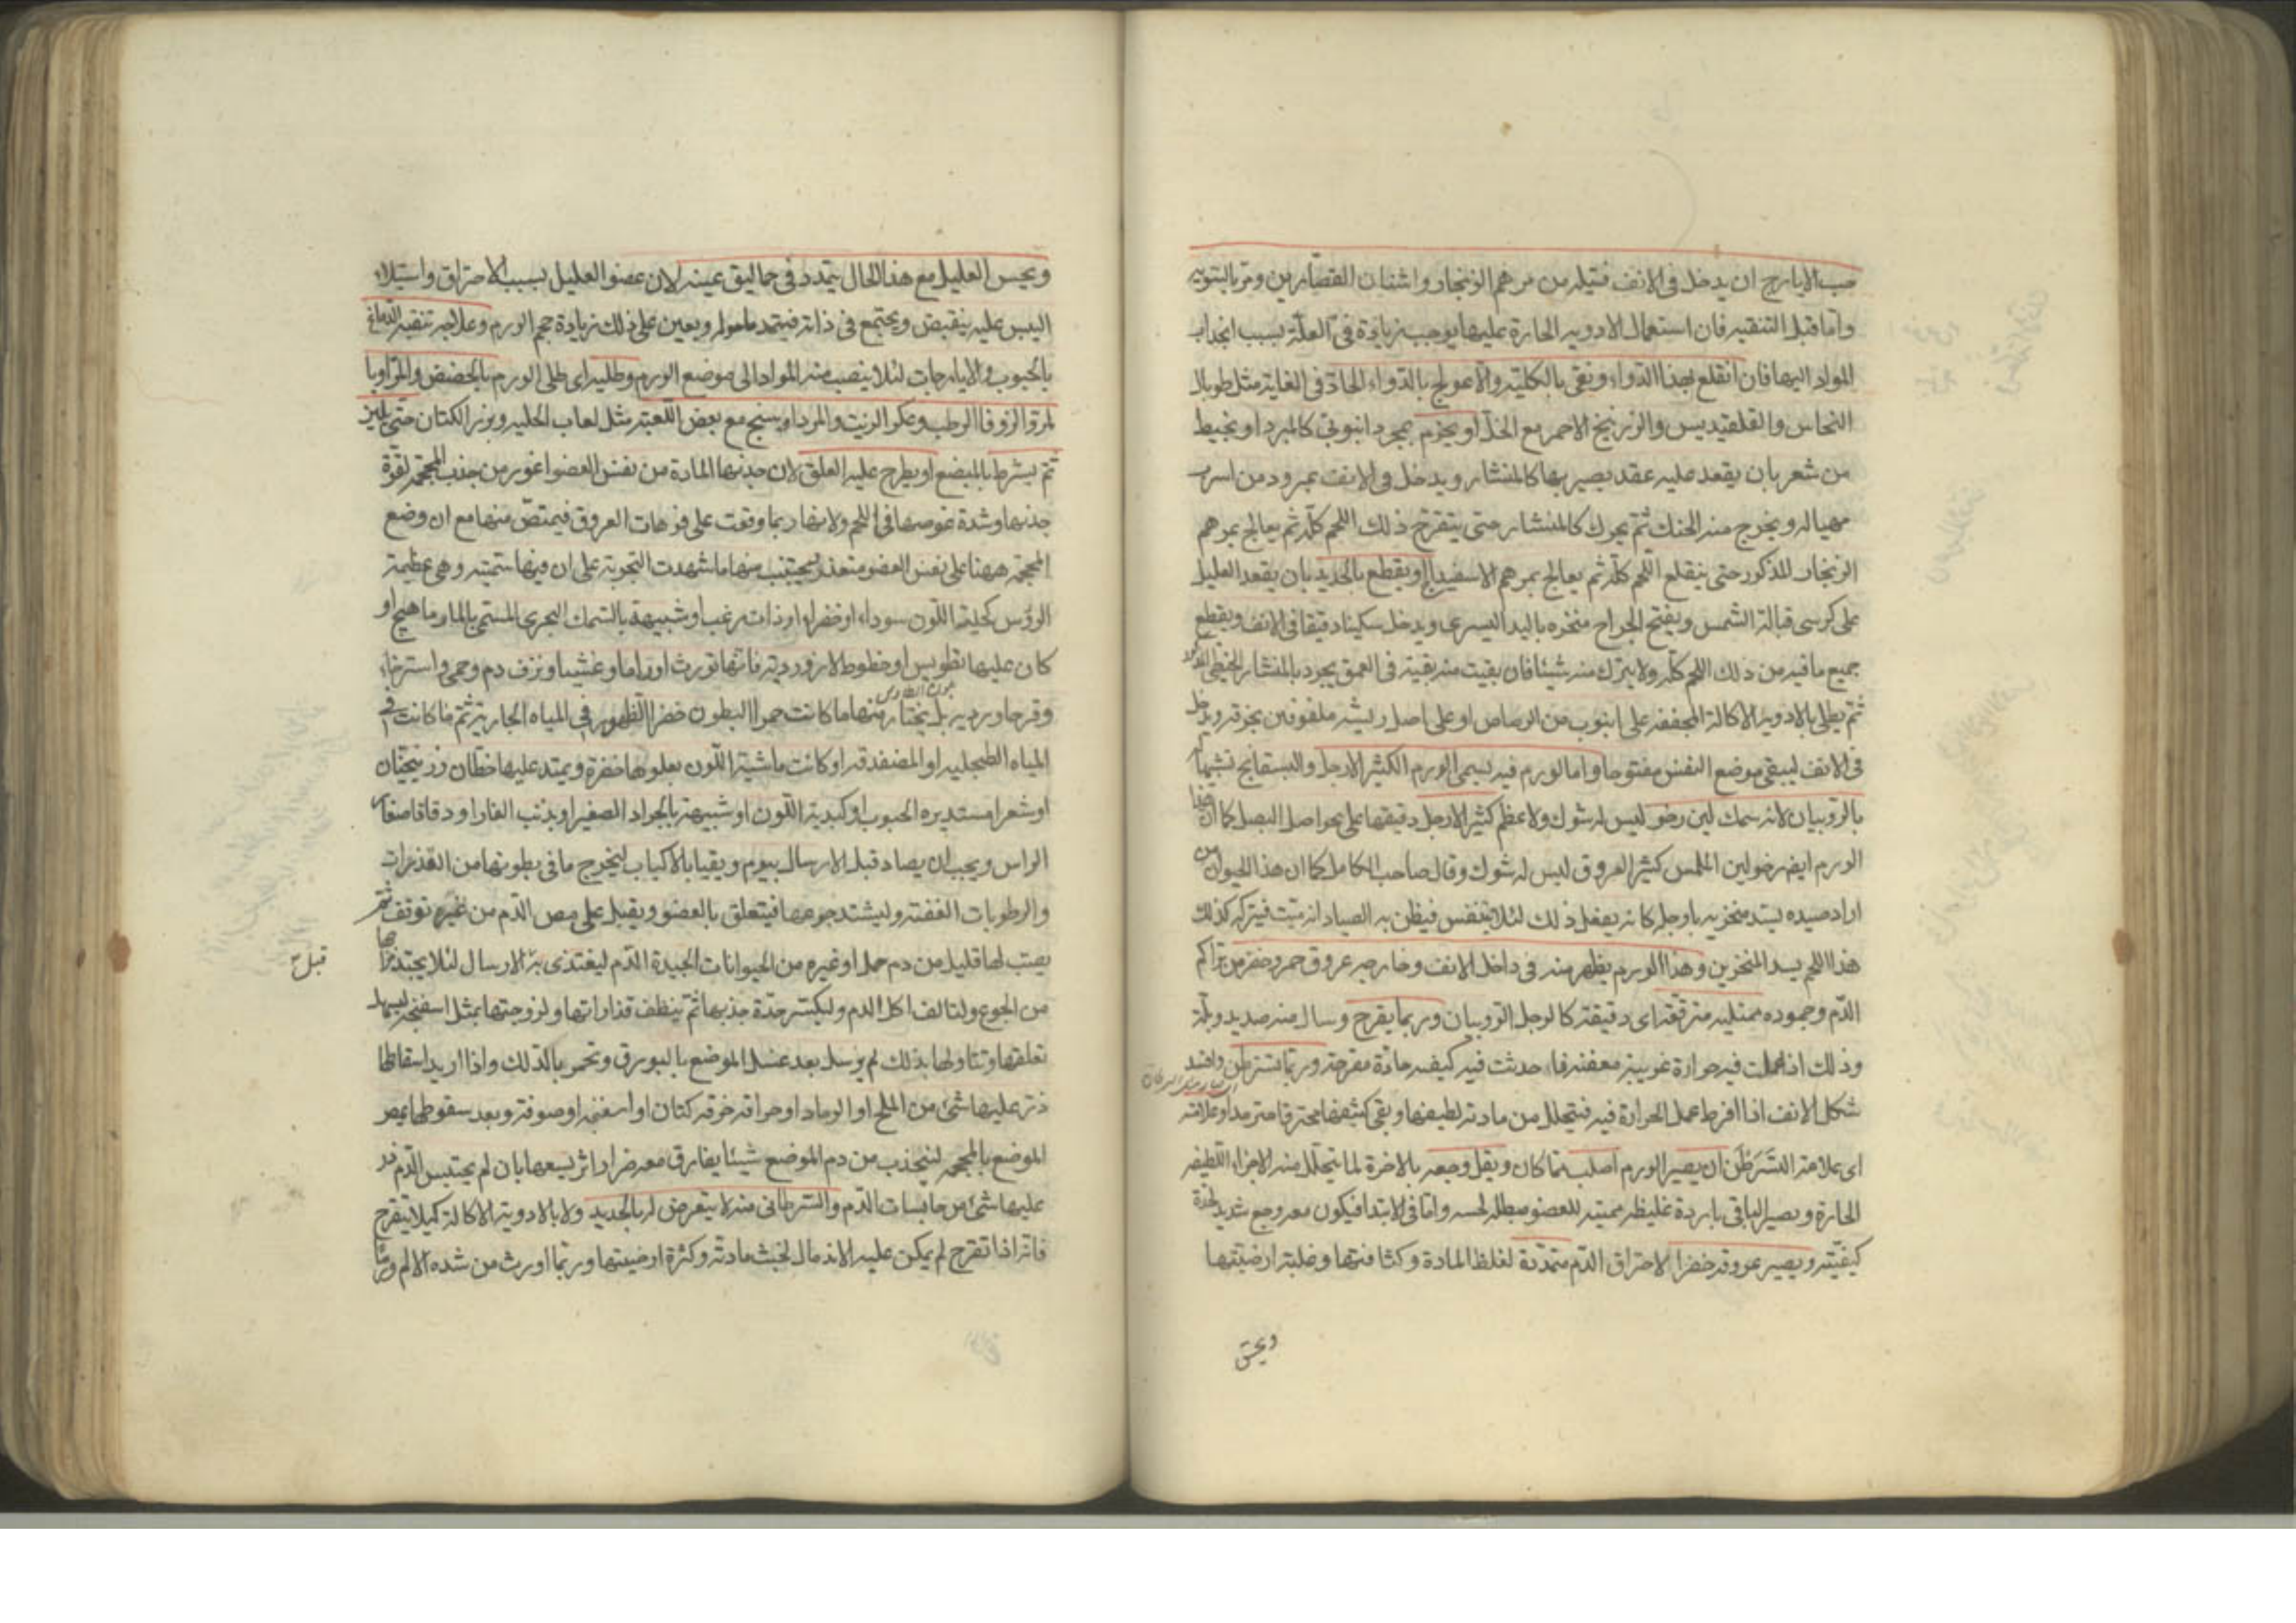 حب الايارج ان يدخل فى الانف فتيله من مرهم الزنجار واشنان القصارين ومر بالسويه
واما قبل التنقيه فان استعمال الادويه الحارة عليها يوجب زيادة فى العلة بسبب انجذاب
المواد اليها فان انقلع بهذا الدواء ونقى بالكليته والا عولج بالدواء الحاد فى الغاية مثل طوبال
النحاس والقلقيديس والزرنيخ الاحمر مع الخل او يخرم بمجرد انبوبى كالمبرد او بخيط
من شعر بان يعقد عليه عقد يصير بها كالمنشار ويدخل فى الانف بمرود من اسرب
مهيا له ويخرج من الحنك ثم يحرك كالمنشار حتى يتقرح ذلك اللحم كله ثم يعالج بمرهم
الزنجار المذكور حتى ينقلع اللحم كله ثم يعالج بمرهم الاسفيداج او يقطع بالحديد بان يقعد العليل
على كرسى قبالة الشمس ويفتح الجراح منخره باليد اليسرى ويدخل سكينا دقيقا فى الانف ويقطع
جميع ما فيه من ذلك اللحم كله ولا يترك منه شيئا فان بقيت منه بقيته فى العمق يجرد بالمنشار الخيطى
ثم يطلى بالادويه الاكالة المجففه على انبوب من الرصاص او على اصل ريشه ملفوفين بخرقه ويدخل
فى الانف ليبقى موضع النفس مفتوحا واما لورم فيه يسمى الورم الكثير الارجل والبسفايج تشبيها له
بالروبيان لانه سمك لين رخو ليس له شوك ولا عظم كثير الارجل دقيقها على حواصل البصل كما ان هذا
الورم ايضا رخو لين الملمس كثير العروق ليس له شوك وقال صاحب الكامل كما ان هذا الحيوان من
اراد صيده يسد منخريه بارجله كانه يفعل ذلك لئلا يتنفس فيظن به الصياد انه ميت فيتركه كذلك
هذا اللحم يسد المنخرين وهذا الورم يظهر منه فى داخل الانف وخارجه عروق حمر وخضر من تراكم
الدم وجموده ممتليه مترققه اى دقيقته كالرجل الروبيان وربما يقرح وسال منه صديد ومدة
وذلك اذا عملت فيه حرارة غريبة معفنه فاحدثت فيه كيفيه حادة مقرحة وربما تسرطن وافسد
شكل الانف اذا افرط عمل الحرارة فيه فيتحلل من مادته لطيفها وبقى كثيفها محترقا مترمدا وعلامته
اى علامة التسرطن ان يصير الورم اصلب مما كان ويقل وجعه بالاخرة لما يتحلل منه الاجزاء اللطيفه
الحارة ويصير الباقى باردة غليظه مميته للعضو مبطله لحسه واما فى الابتدا فيكون معه وجع شديد لحدة
كيفيته ويصير عروقه خضرا لاحتراق الدم متمددة لغلظ المادة وكثافتها وغلبة ارضيتها
ويحس
ويحس العليل مع هذا الحال بتمدد فى حماليق عينه لان عضو العليل بسبب الاحتراق واستيلاء
اليبس عليه ينقبض ويجتمع فى ذاته فيتمدد ما حوله ويعين على ذلك زيادة حجم الورم وعلاجه تنقيه الدماغ
بالحبوب والايارجات لئلا ينصب منه المواد الى موضع الورم وطليه اى طلى الورم بالحضض والمر او با
لمر والزوفا الرطب وعكر الزيت والمرداسنج مع بعض اللعبة مثل لعاب الحلبه وبزر الكتان حتى يلين
ثم يشرط بالمبضع او يطرح عليه العلق لان جذبها المادة من نفس العضو اغور من جذب المحجمه لقوة
جذبها وشدة غوصها فى اللحم ولانها ربما وقعت على فوهات العروق فيمتص منها مع ان وضع
المحجمه ههنا على نفس العضو متعذر ليجتنب منها ما شهدت التجربة على ان فيها سمية وهى عظيمة
الرؤس كحليه اللون سوداء او خضراء او ذات زغب او شبيهة بالسمك البحرى المسمى بالمارماهيج او
كان عليها تطويس او خطوط لازوردية فانها تورث اوراما وغشيا ونزف دم وحمى واسترخاء
وقروحا رديه بل يختار منها ما كانت حمرا البطون خضرا الظهور فى المياه الجارية ثم ما كانت فى
المياه الطحلبيه او المضفدقه او كانت ماشية اللون يعلوها خضرة ويمتد عليها خطان زرنيخيان
او شعرا مستديره الجنوب او كبدية اللون او شبيهة بالجراد الصغير او بذنب الفار او دقاقا صغار
الراس ويجب ان يصاد قبل الارسال بيوم ويقيا بالاكباب ليخرج ما فى بطونها من القذرات
والرطوبات العفنه وليشتد جوعها فيتعلق بالعضو ويقبل على مص الدم من غير توقف ثم
يصب لها قليل من دم حمل او غيره من الحيوانات الجيدة الدم ليغتذى به الارسال لئلا يجتذبها
قبل
من الجوع ولتالف اكل الدم وليكسر حدة جذبها ثم ينظف قذاراتها ولزوجتها بمثل اسفنجه ليسهل
تعلقها وتناولها بذلك ثم يرسل بعد غسل الموضع بالبورق وتحمر بالدلك واذا اريد اسقاطها
ذر عليها شئ من الملح او الرماد او حراقه خرقه كتان او اسفنجه او صوفة وبعد سقوطها يمص
الموضع بالمحجمه لينجذب من دم الموضع شيئا يفارق معه ضرار اثر لسعها بان لم يحتبس الدم ذر
عليها شئ من حابسات الدم والسرطانى منه لا يتعرض له بالحديد ولا بالادوية الاكالة كيلا يتقرح
فانه اذا تقرح لم يمكن عليه الاندمال لخبث مادته وكثرة ارضيتها وربما اورث من شده الالم ورما